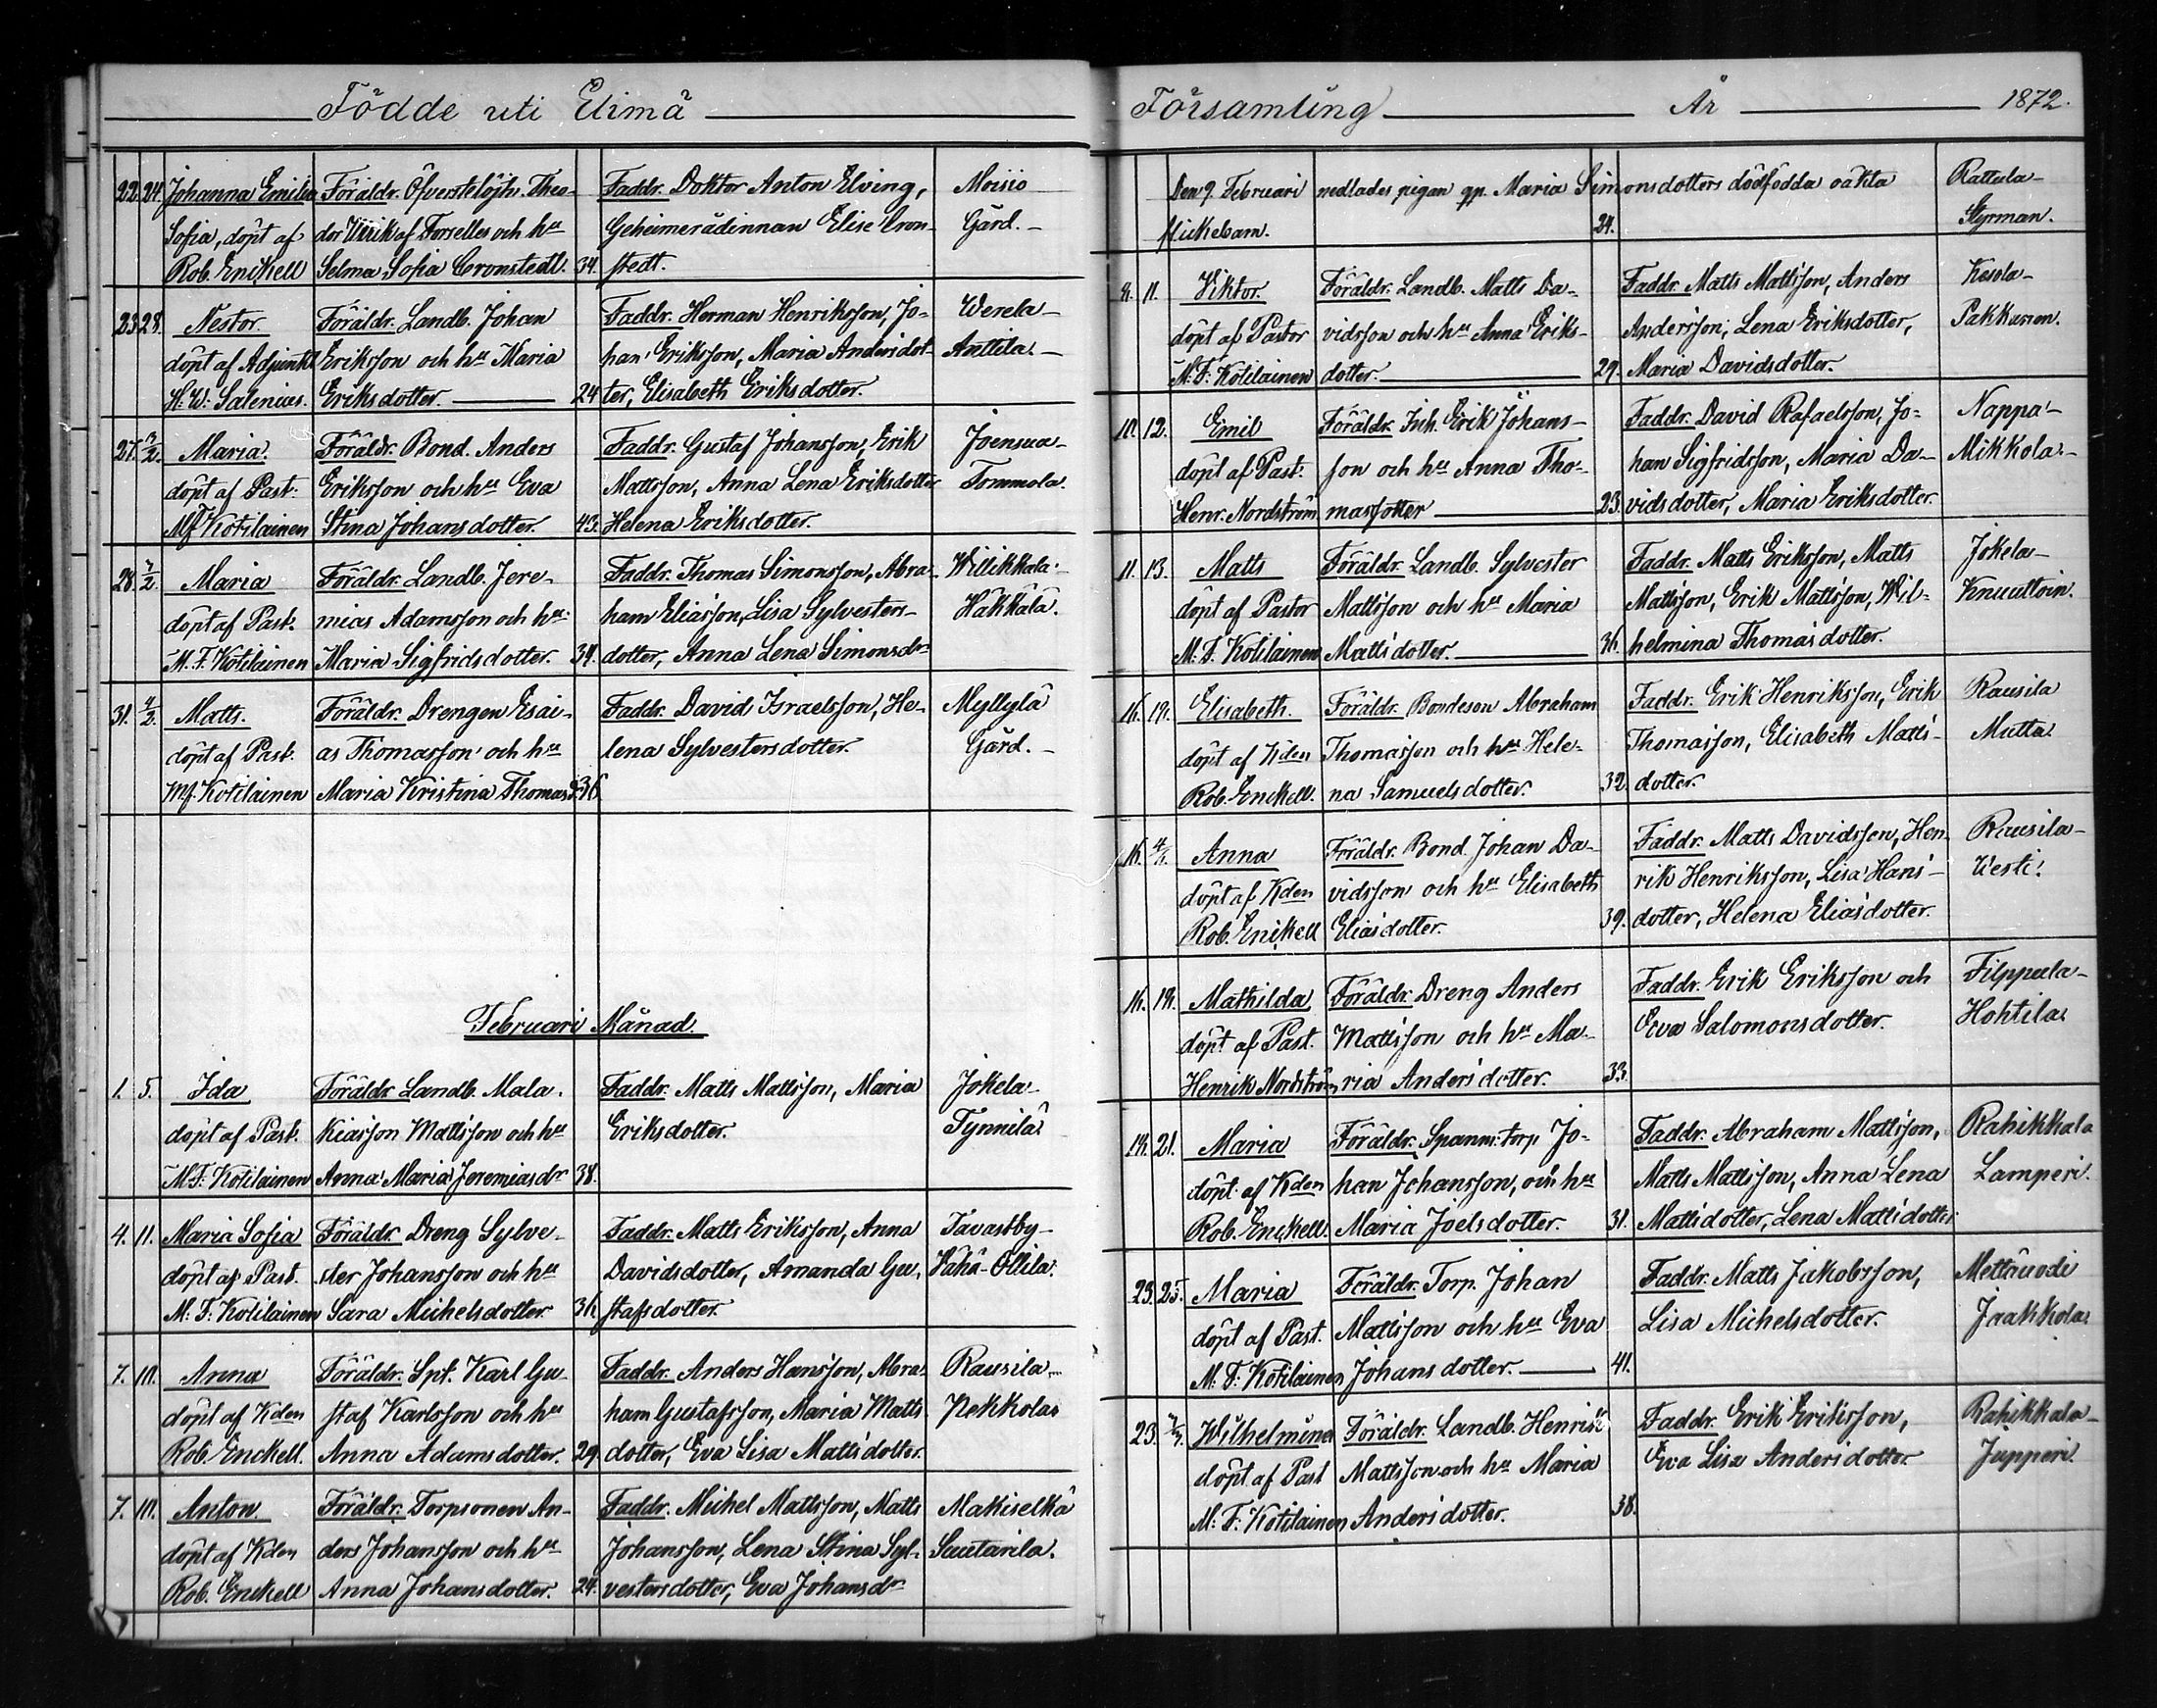 Födde uti Elimä
22. 24. Johanna Emilia Föräldr. Öfverstelöjtn. Theo- Faddr. Doktor Anton Elving, Moisio
Sofia, döpt af dor Ulrik af Forselles och hu Geheimerådinnan Elise Cron- Gård.
Rob. Enckell Selma Sofia Cronstedt. 34. stedt.
23. 28. Nestor Föräldr. Landb. Johan Faddr. Herman Henriksson, Jo- Werela-
döpt af Adjunkt Eriksson och hu Maria han Eriksson, Maria Andersdot- Anttila.
H. W. Salenius. Eriksdotter. 24 ter, Elisabeth Eriksdotter.
27. Maria. Föräldr. Bond. Anders Faddr. Gustaf Johansson, Erik Joensuu-
döpt af Past. Eriksson och hu Eva Mattsson, Anna Lena Eriksdotter Tommola.
M F Kotilainen Stina Johansdotter. 43. Helena Eriksdotter.
28. Maria Föräldr. Landb. Jere- Faddr. Thomas Simonsson, Abra- Willikkala-
döpt af Past. mias Adamsson och hu ham Eliasson, Lisa Sylvesters- Häkkälä.
M. F. Kotilainen Maria Sigfridsdotter. 34. dotter, Anna Lena Simonsdr
31. 4/2. Matts. Föräldr. Drengen Esai- Faddr. David Israelsson, He- Myllylä
döpt af Past. as Thomasson och hu lena Sylvestersdotter. Gård.
M F. Kotilainen Maria Kristina Thomasd. 36
Februari Månad.
1. 5. Ida Föräldr. Landb. Mala- Faddr. Matts Mattsson, Maria Jokela-
döpt af Past. kiasson Mattsson och hu Eriksdotter. Tynnilä.
M. F. Kotilainen Anna Maria Jeremiasdr 38.
4. 11. Maria Sofia Föräldr. Dreng Sylve- Faddr. Matts Eriksson, Anna Tavastby-
döpt af Past. ster Johansson och hu Davidsdotter, Amanda Gu- Wähä-Ollila.
M. F. Kotilainen Sara Michelsdotter. 36. stafsdotter.
7. 10. Anna Föräldr. Spt. Karl Gu- Faddr. Anders Hansson, Abra- Rausila-
döpt af Kden staf Karlsson och hu ham Gustafsson, Maria Matts- Nekkola
Rob. Enckell. Anna Adamsdotter. 29. dotter, Eva Lisa Mattsdotter.
7. 10. Anton. Föräldr. Torpsonen An- Faddr. Michel Mattsson, Matts Mäkiselkä
döpt af Kden ders Johansson och hu Johansson, Lena Stina Syl- Suutarila.
Rob. Enckell Anna Johansdotter. 24. vestersdotter, Eva Johansdr
Församling År 1872.
Den 9. Februari nedlades pigan qp. Maria Simonsdotters dödfödda oäkta Rattula-
flickebarn. 24. Styrman.
11. Viktor. Föräldr. Landb. Matts Da- Faddr. Matts Mattsson, Anders Kosola-
döpt af Pastor vidsson och hu Anna Eriks- Andersson, Lena Eriksdotter, Pakkanen.
M. F. Kotilainen dotter. 29. Maria Davidsdotter.
10. 12. Emil Föräldr. Inh. Erik Johans- Faddr. David Rafaelsson, Jo- Nappa-
döpt af Past. son och hu Anna Tho- han Sigfridsson, Maria Da- Mikkola.
Henr. Nordström masdotter 23. vidsdotter, Maria Eriksdotter.
11. 13. Matts Föräldr. Landb. Sylvester Faddr. Matts Eriksson, Matts Jokela-
döpt af Pastor Mattsson och hu Maria Mattsson, Erik Mattsson, Wil- Knuuttoin.
M. F. Kotilainen Mattsdotter. 36. helmina Thomasdotter.
16. 19. Elisabeth. Föräldr. Bondeson Abraham Faddr. Erik Henriksson, Erik Rausila
döpt af Kden Thomasson och hu Hele- Thomasson, Elisabeth Matts- Mutta
Rob. Enckell. na Samuelsdotter. 32. dotter.
16. Anna Föräldr. Bond. Johan Da- Faddr. Matts Davidsson, Hen- Rausila-
döpt af Kden vidsson och hu Elisabeth rik Henriksson, Lisa Hans- Uesti.
Rob. Enckell Eliasdotter. 39. dotter, Helena Eliasdotter.
16. 19. Mathilda Föräldr. Dreng Anders Faddr. Erik Eriksson och Filppula-
döpt af Past. Mattsson och hu Ma- Eva Salomonsdotter. Hohtila
Henrik Nordström ria Andersdotter. 33.
19. 21. Maria Föräldr. Spanm. torp. Jo- Faddr. Abraham Mattsson, Rahikkala
döpt af Kden han Johansson, och hu Matts Mattsson, Anna Lena Lamperi.
Rob. Enckell. Maria Joelsdotter. 31. Mattsdotter, Lena Mattsdotter
23. 25. Maria Föräldr. Torp. Johan Faddr. Matts Jakobsson, Mettäuodi
döpt af Past. Mattsson och hu Eva Lisa Michelsdotter. Jaakkola
M. F. Kotilainen Johansdotter. 41.
23. Wilhelmina Föräldr. Landb. Henrik Faddr. Erik Eriksson, Rahikkala-
döpt af Past Mattsson och hu Maria Eva Lisa Andersdotter Jupperi.
M. F. Kotilainen Andersdotter. 38.